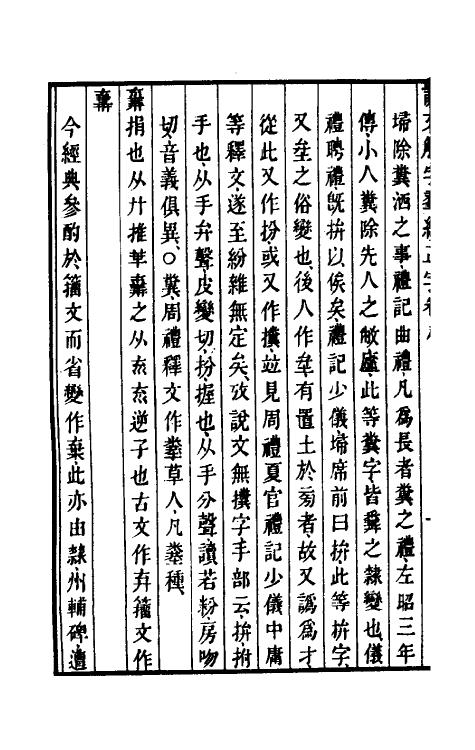 埽除糞洒之事禮記曲禮凡爲長者糞之禮左昭三年
傳小人糞除先人之敝廬此等糞字皆𡏖之隸變也儀
禮聘禮旣拚以俟矣禮記少儀埽席前曰拚此等拚字
又坌之俗變也後人作坌有置土於旁者故又譌爲才
從此又作扮或又作㩥竝見周禮夏官禮記少儀中庸
等釋文遂至紛雜無定矣攷說文無㩥字手部云拚拊
手也从手弁聲皮變切扮握也从手分聲讀若粉房吻
切音義俱異○糞周禮釋文作𡏖草人凡𡏖種
棄捐也从廾推𠦒棄之从𠫓𠫓逆子也古文作弃籒文作
棄
今經典參酌於籒文而省變作棄此亦由隸州輔碑遭